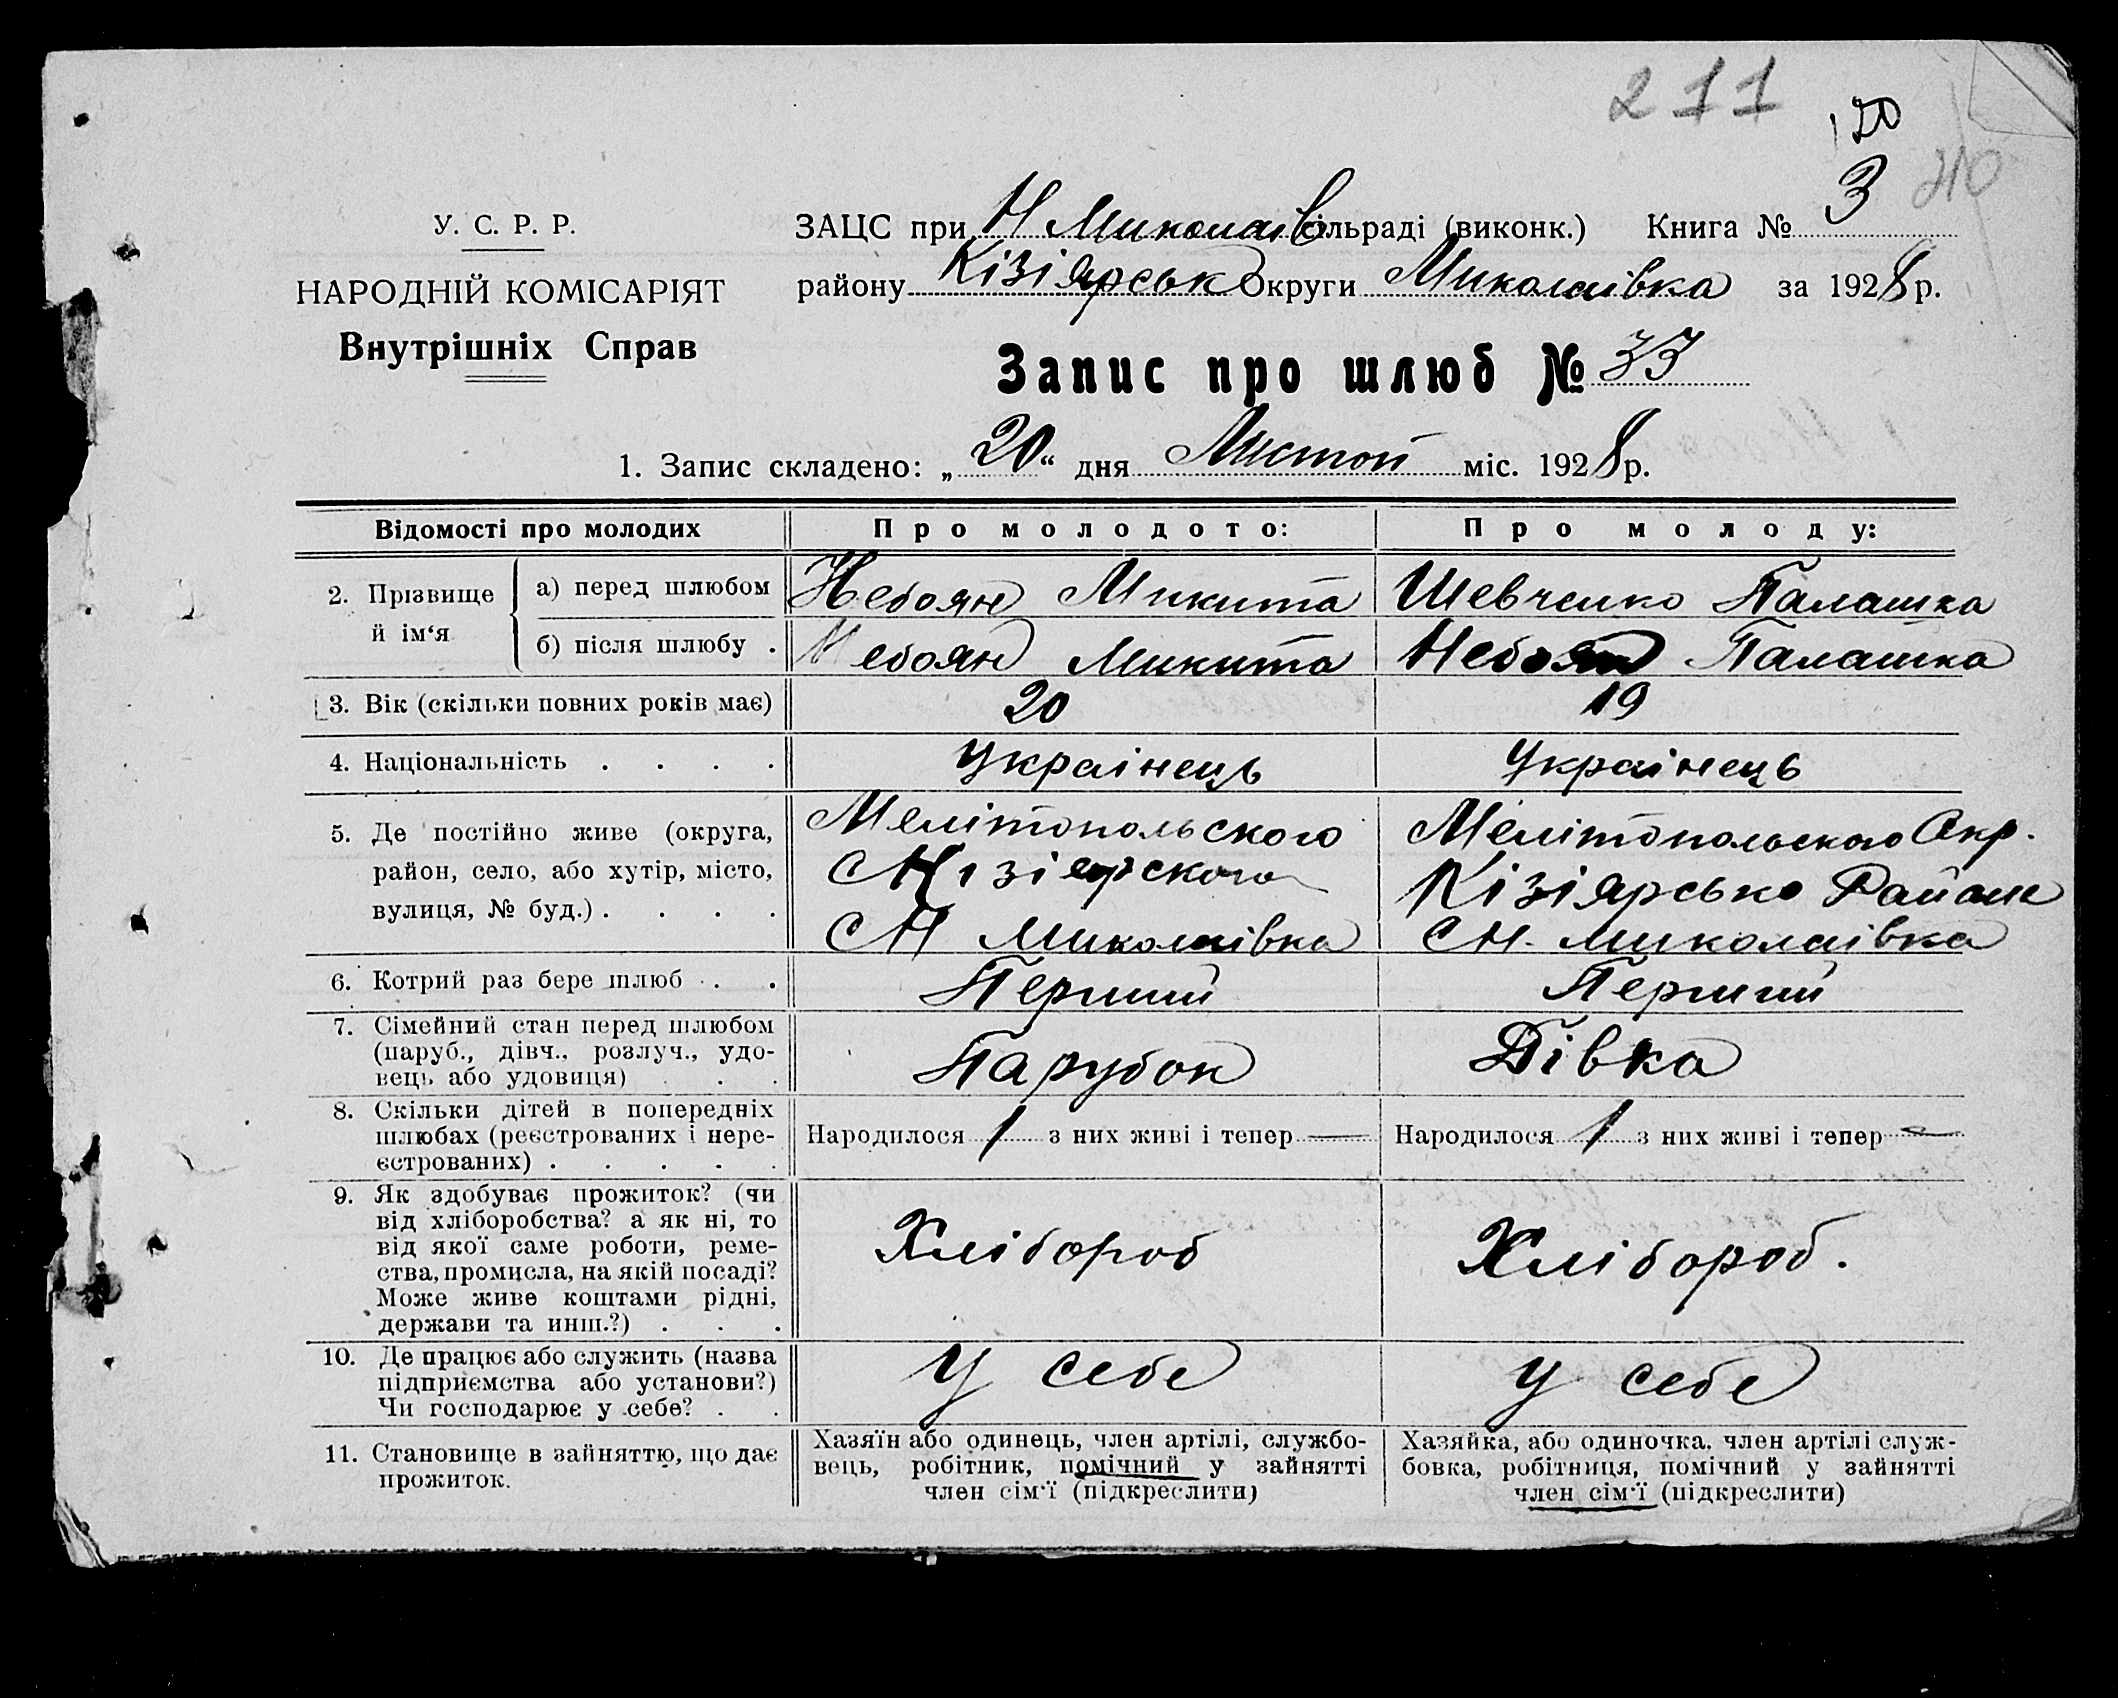 211
120
210
У. С. Р. Р.
НАРОДНІЙ КОМІСАРІЯТ
Внутрішніх Справ
ЗАЦС при Н Миколаїв сільраді (виконк.) Книга № 3
району Кізіярськ Округи Миколаівка за 1928 р.
Запис про шлюб № 33
1. Запис складено: „20“ дня Листоп міс. 1928 р.
Відомості про молодих Про молодого: Про молоду:
2. Прізвище й ім‘я
а) перед шлюбом Небоян Микита Шевченко Палашка
б) після шлюбу . Небоян Микита Небоян Палашка
3. Вік (скільки повних років має) 20 19
4. Національність . . . . Украінець Украінець
5. Де постійно живе (округа, район, село, або хутір, місто, вулиця, № буд.) . . . .
Мелітопольского
Кізіерского
С Н Миколаівка
Мелітопольского Окр.
Кізіярсько Району
С Н. Миколаівка
6. Котрий раз бере шлюб . . Перший Перший
7. Сімейний стан перед шлюбом
(паруб., дівч., розлуч., удо-
вець або удовиця) . . . Парубок Дівка
8. Скільки дітей в попередніх
шлюбах (реєстрованих і нере-
єстрованих) . . . . .
Народилося / з них живі і тепер — Народилося / з них живі і тепер —
9. Як здобуває прожиток? (чи
від хліборобства? а як ні, то
від якої саме роботи, реме-
ства, промисла, на якій посаді?
Може живе коштами рідні,
держави та инш.?) . . .
Хлібороб Хлібороб.
10. Де працює або служить (назва
підприємства або установи?)
Чи господарює у себе? . .
У себе У себе
11. Становище в зайняттю, що дає
прожиток.
Хазяїн або одинець, член артілі, службо-
вець, робітник, помічний у зайнятті
член сім‘ї (підкреслити)
Хазяйка, або одиночка, член артілі служ-
бовка, робітниця, помічний у зайнятті
член сім‘ї (підкреслити)